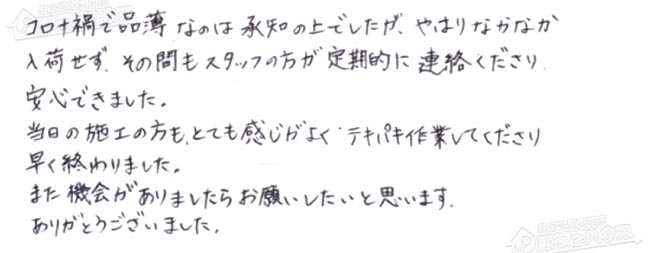 コロナ禍で品薄なのは承知の上でしたが、やはりなかなか
入荷せず、その間もスタッフの方が定期的に連絡くださり
安心できました。
当日の施工の方も、とても感じがよく テキパキ作業してくださり
早く終わりました。
また機会がありましたらお願いしたいと思います。
ありがとうございました。